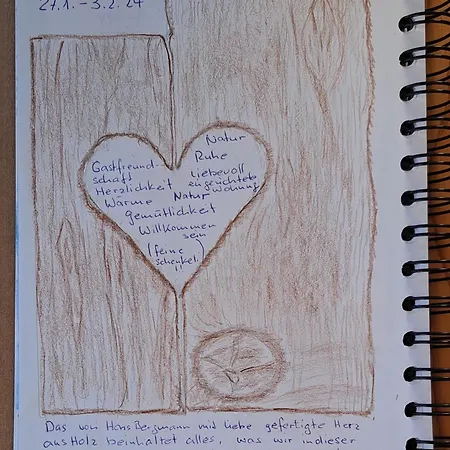 27.1. – 3.2. 24
Natur
Ruhe
Gastfreund-
schaft
Herzlichkeit
Wärme
liebevoll
eingerichtete
Wohnung
Natur
gemütlichkeit
Willkommen
sein
(feine
schenkel)
!!
Das von Hans Bergmann mit liebe gefertigte Herz
aus Holz beinhaltet alles, was wir in dieser